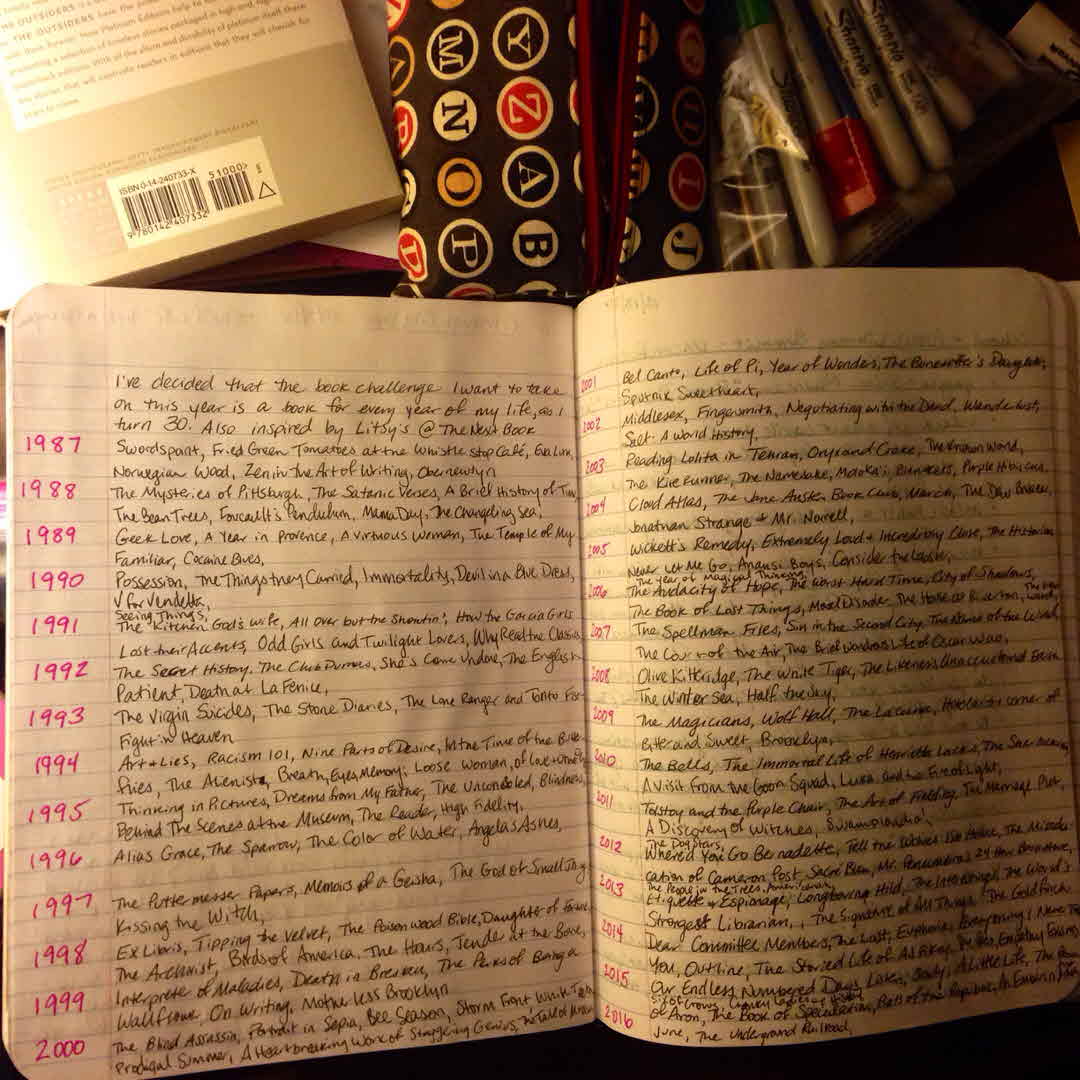 THE OUTSIDERS
ISBN 0-14-240733-X
51000>
9780142407332
A M Y
N Z
O A I
P B J
Sharpie
Sharpie
I've decided that the book challenge I want to take
on this year is a book for every year of my life, as I
turn 30. Also inspired by Litsy's @ The Next Book
1987
Swordspoint, Fried Green Tomatoes at the Whistle stop Café, Eva Luna,
Norwegian Wood, Zen in the Art of Writing, Obernewtyn
1988
The Mysteries of Pittsburgh, The Satanic Verses, A Brief History of Time,
The Bean Trees, Foucault's Pendulum, Mama Day, The Changeling Sea,
1989
Geek Love, A Year in Provence, A Virtuous Woman, The Temple of My
Familiar, Cocaine Blues,
1990
Possession, The Things they Carried, Immortality, Devil in a Blue Dress,
V for Vendetta,
Seeing Things,
1991
The Kitchen God's Wife, All Over but the Shoutin', How the Garcia Girls
Lost their Accents, Odd Girls and Twilight Lovers, Why Read the Classics
1992
The Secret History, The Club Dumas, She's Come Undone, The English
Patient, Death at La Fenice,
1993
The Virgin Suicides, The Stone Diaries, The Lone Ranger and Tonto
Fight in Heaven
1994
Art & Lies, Racism 101, Nine Parts of Desire, In the Time of the Butter
flies, The Alienist, Breath, Eyes, Memory, Loose Woman, of Love + Other
1995
Thinking in Pictures, Dreams from My Father, The Unconsoled, Blindness,
Behind The Scenes at the Museum, The Reader, High Fidelity,
1996
Alias Grace, The Sparrow, The Color of Water, Angela's Ashes,
1997
The Puttermesser Papers, Memoirs of a Geisha, The God of Small Thing
Kissing the Witch,
1998
Ex Libris, Tipping the Velvet, The Poisonwood Bible, Daughter of Fortune,
The Archivist, Birds of America, The Hours, Tender at the Bone,
1999
Interpreter of Maladies, Death in Breslau, The Perks of Being a
Wallflower, On Writing, Motherless Brooklyn
2000
The Blind Assassin, Portrait in Sepia, Bee Season, Storm Front, White Teeth
Prodigal Summer, A Heartbreaking Work of Staggering Genius, The Tale of
2001
Bel Canto, Life of Pi, Year of Wonders, The Bonesetter's Daughter,
Sputnik Sweetheart,
2002
Middlesex, Fingersmith, Negotiating with the Dead, Wanderlust,
Salt: A World History,
2003
Reading Lolita in Tehran, Oryx and Crake, The Known World,
The Kite Runner, The Namesake, Bunkers, Purple Hibiscus,
2004
Cloud Atlas, The Jane Austen Book Club, The Dew Breaker,
Jonathan Strange + Mr. Norrell,
2005
Wickett's Remedy, Extremely Loud + Incredibly Close, The Historian
Never Let Me Go, Anansi Boys, Consider the Lobster,
The Year of Magical Thinking,
2006
The Audacity of Hope, The Worst Hard Time, City of Shadows,
The Book of Lost Things, Moral Disorder, The House at Riverton,
2007
The Spellman Files, Sin in the Second City, The Name of the Wind,
The Court of the Air, The Brief Wondrous Life of Oscar Wao,
2008
Olive Kitteridge, The White Tiger, The Likeness, Unaccustomed Earth
The Winter Sea, Half the Sky,
2009
The Magicians, Wolf Hall, The Lacuna, Hotel at the corner of
Bitter and Sweet, Brooklyn,
2010
The Bells, The Immortal Life of Henrietta Lacks, The
A Visit From the Goon Squad, Luka and the Fire of Life,
2011
Tolstoy and the Purple Chair, The Art of Fielding, The Marriage Plot,
A Discovery of Witches, Swamplandia!,
The Dog Stars,
2012
Where'd You Go Bernadette, Tell the Wolves I'm Home, The Misedu
cation of Cameron Post, Sacré Bleu, Mr. Penumbra's 24 Hour Bookstore,
The People in the Trees, Americanah,
2013
Etiquette & Espionage, Longbourn, Hild, The Interestings, The World's
Strongest Librarian, The Signature of All Things, The Goldfinch
2014
Dear Committee Members, The Last, Euphoria, Everything I Never Told
You, Outline, The Storied Life of AJ Fikry, Empathy Exams
2015
Our Endless Numbered Days, A Little Life, The
Six of Crows,
of Aron, The Book of Speculation,
2016
June, The Underground Railroad,